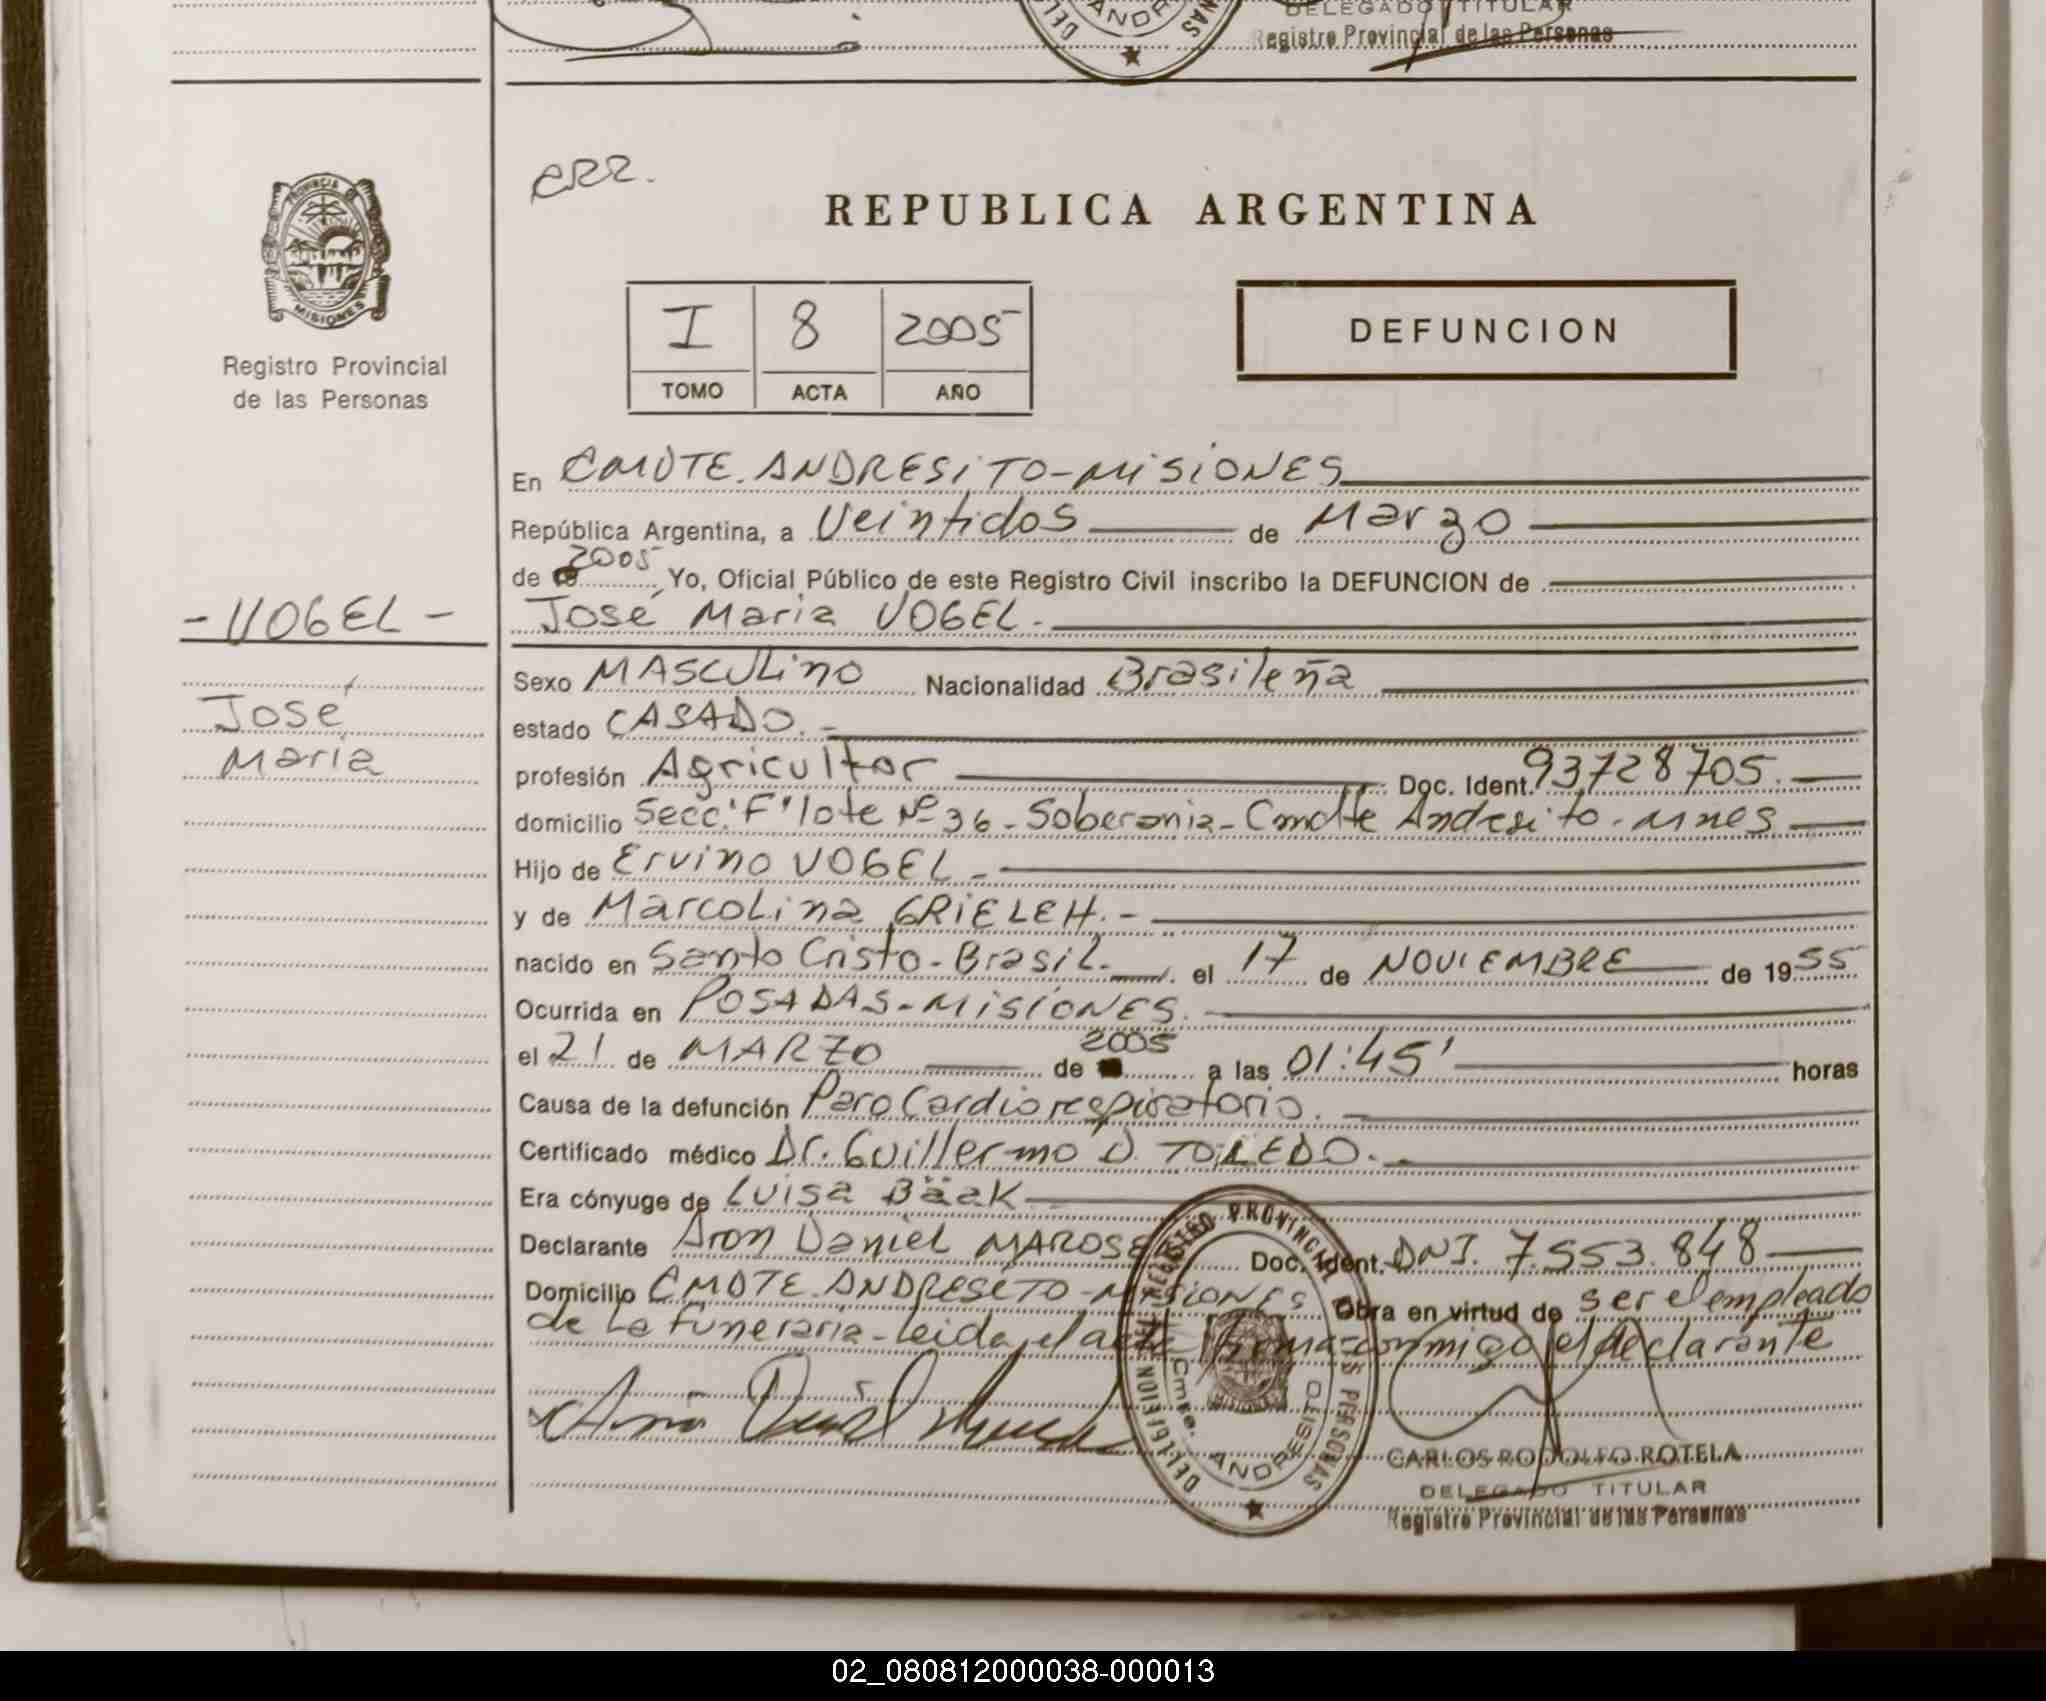 DELEGADO TITULAR
Registro Provincial de las Personas
ANDR
err.
REPUBLICA ARGENTINA
PROVINCIA DE
MISIONES
Registro Provincial
de las Personas
I 8 2005
TOMO ACTA AÑO
DEFUNCION
En CMDTE. ANDRESITO-MISIONES
República Argentina, a Veintidos de Marzo
de 2005 Yo, Oficial Público de este Registro Civil inscribo la DEFUNCION de
- VOGEL - José Maria VOGEL.-
Sexo MASCULino Nacionalidad Brasileña
José estado CASADO.-
María profesión Agricultor Doc. Ident. 93728705.
domicilio Secc. "F" lote Nº 36 - Soberania - Cmdte Andresito - Mnes
Hijo de Ervino VOGEL -
y de Marcolina GRIELEH.-
nacido en Santo Cristo - Brasil. el 17 de NOVIEMBRE de 1955
Ocurrida en POSADAS - MISIONES.
el 21 de MARZO de 2005 a las 01:45' horas
Causa de la defunción Paro Cardiorespiratorio.
Certificado médico Dr. Guillermo D. TOLEDO.-
Era cónyuge de Luisa Bäak
Declarante Aron Daniel MAROSE Doc. Ident. DNI. 7.553.848
Domicilio CMDTE. ANDRESITO - MISIONES Obra en virtud de ser el empleado
de La Funeraria - Leida el acta firma conmigo el declarante
DELEGACION DEL REGISTRO PROVINCIAL DE LAS PERSONAS
Cmte. ANDRESITO
CARLOS RODOLFO ROTELA
DELEGADO TITULAR
Registro Provincial de las Personas
02_080812000038-000013